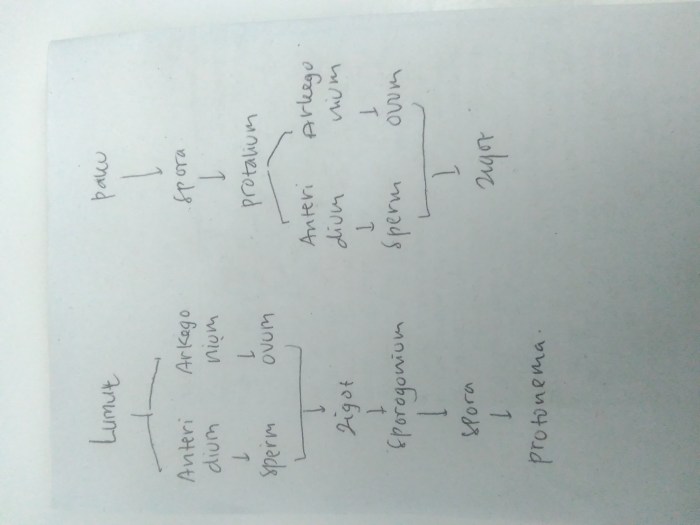 Lumut
Anteri
dium
Arkego
nium
sperm
ovum
zigot
sporogonium
spora
protonema.
paku
spora
protalium
Anteri
dium
Arkego
nium
sperm
ovum
zigot